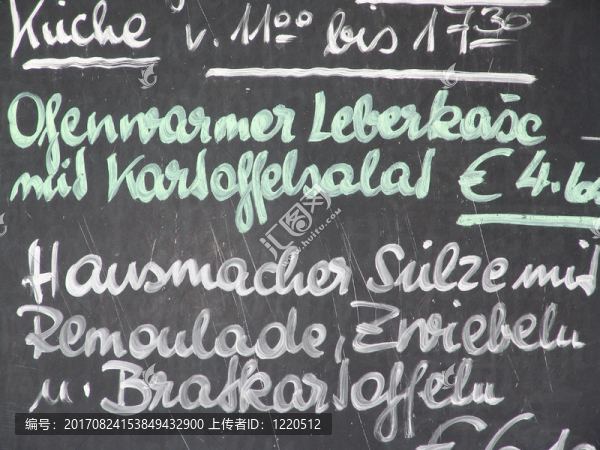 Küche v. 11⁰⁰ bis 17³⁰
Ofenwarmer Leberkäse
mit Kartoffelsalat € 4.60
Hausmacher Sülze mit
Remoulade, Zwiebeln
u. Bratkartoffeln
编号: 20170824153849432900 上传者ID: 1220512